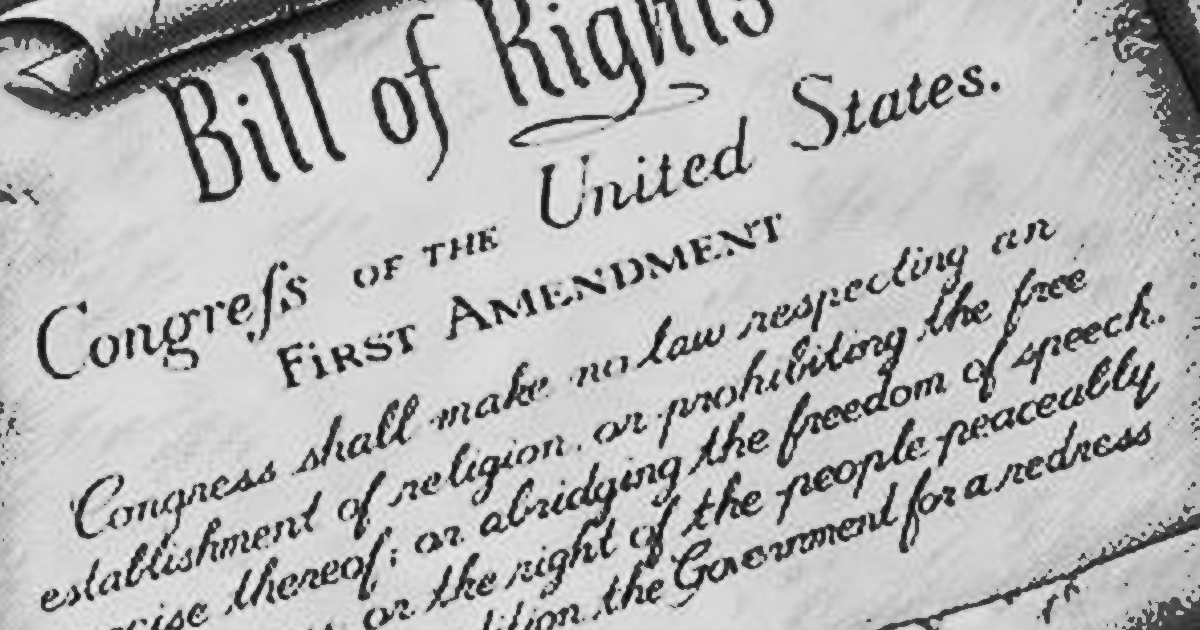 Bill of Rights
Congreſs OF THE United States.
FIRST AMENDMENT
Congress shall make no law respecting an
establishment of religion, or prohibiting the free
thereof; or abridging the freedom of speech.
or the right of the people peaceably
the Government for a redress